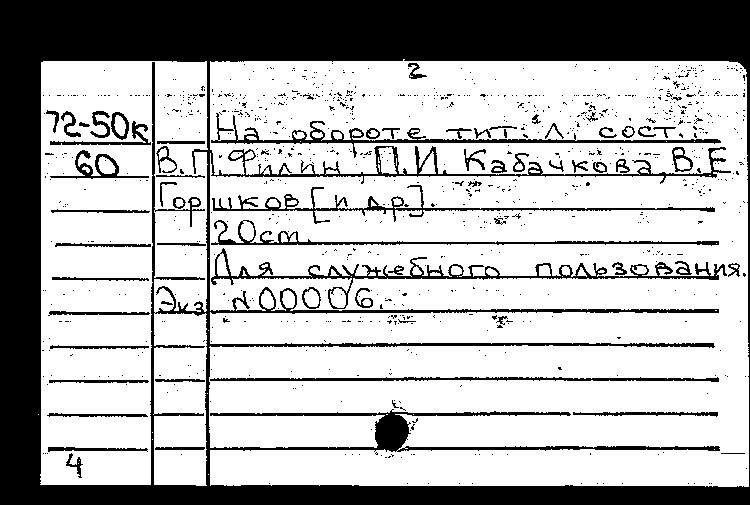 2
72-50к На обороте тит. л. сост.:
60 В.П. Филин, П.И. Кабачкова, В.Е.
Горшков [и др.].
20 cm.
Для служебного пользования.
Экз. N 00006.
4